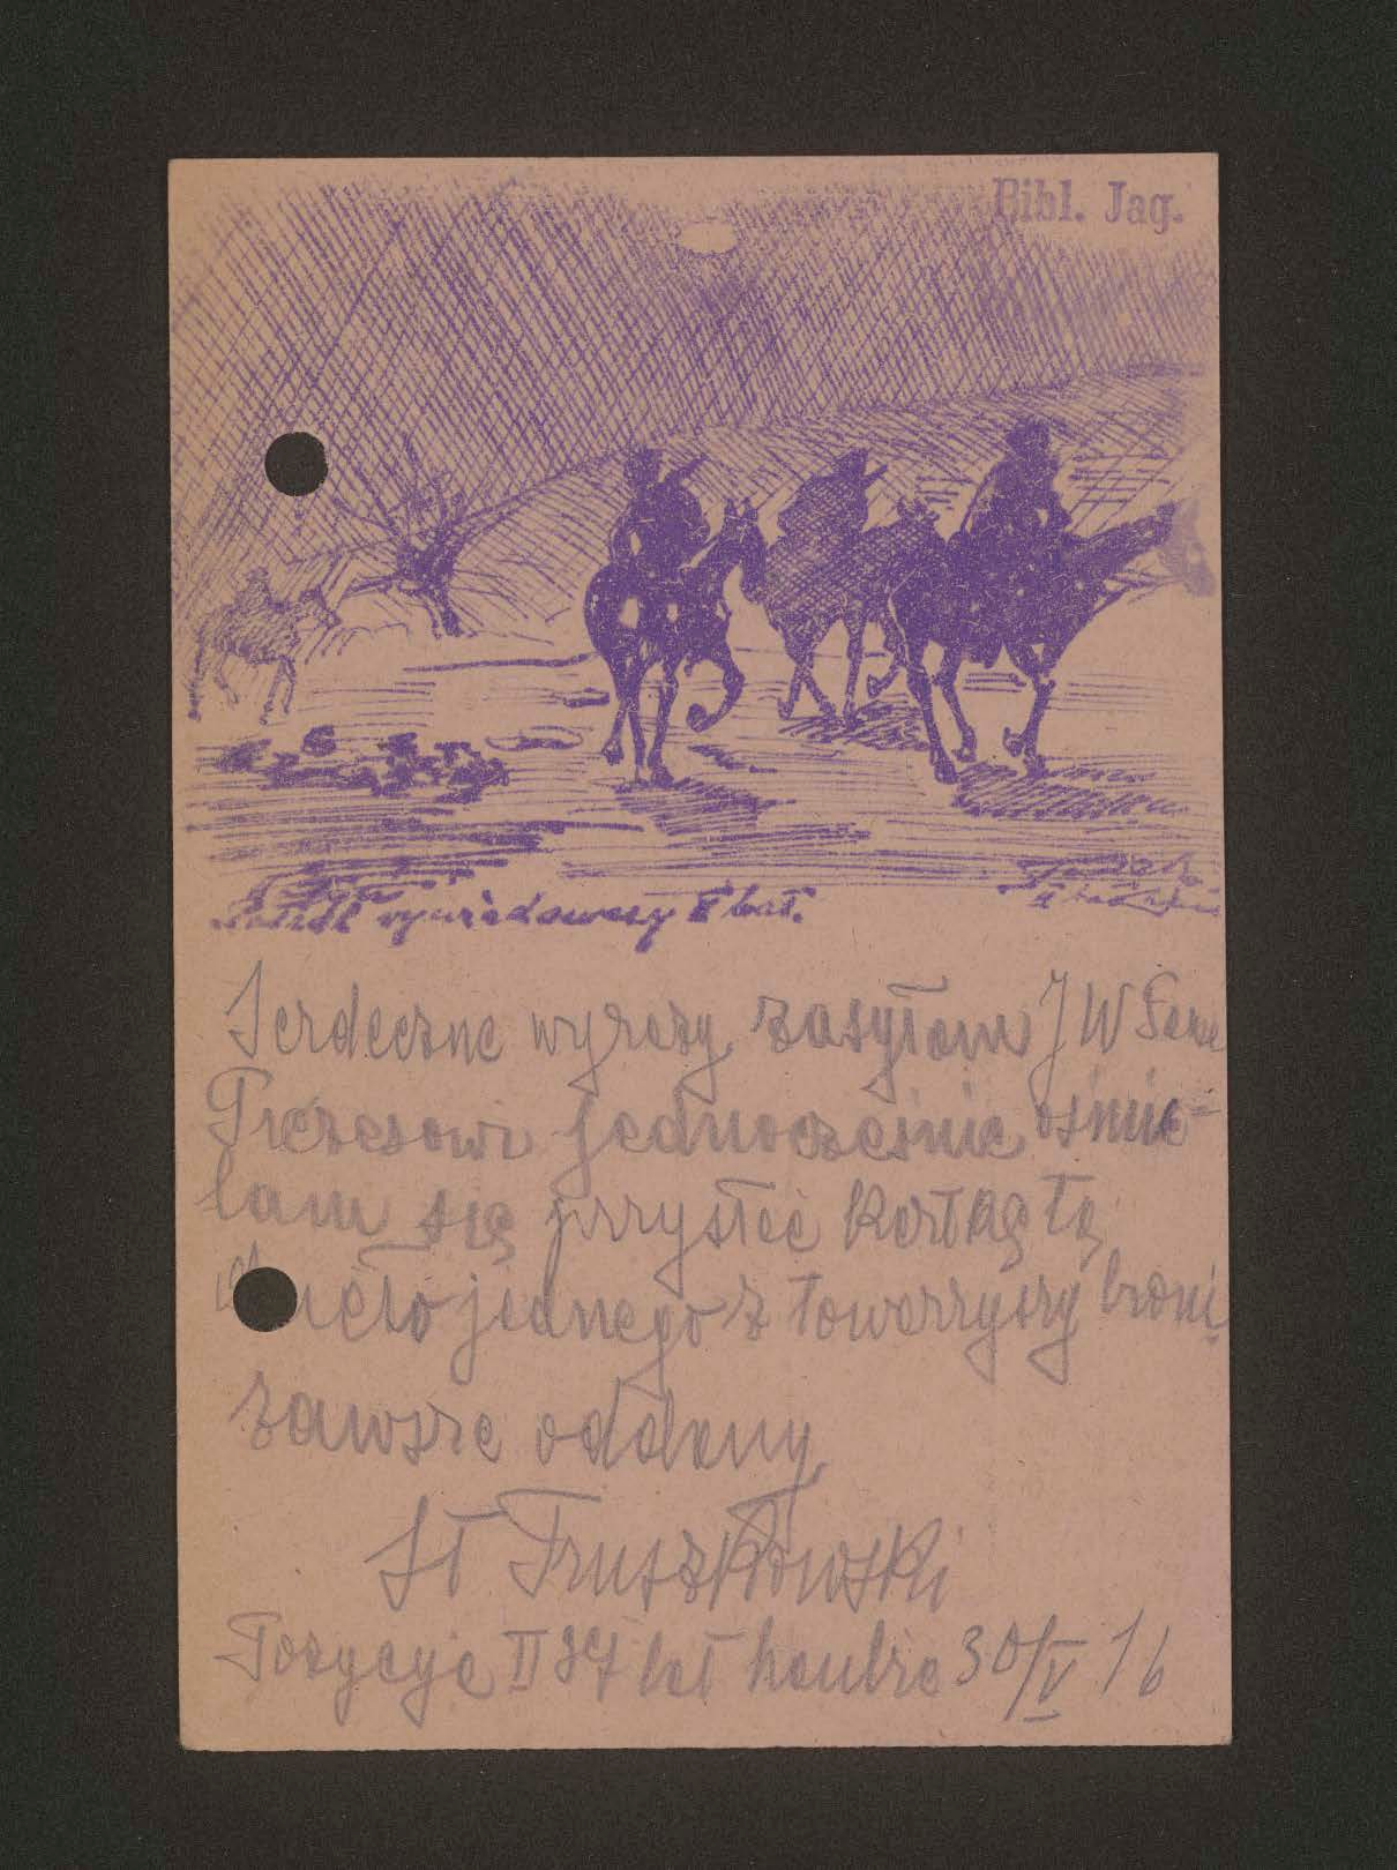 Bibl. Jag.
Patrol wywiadowczy II bat.
Serdeczne wyrazy zasyłam JW Panu
Prezesowi jednocześnie ośmie-
lam się przysłać kartkę tę
dzieło jednego z towarzyszy broni
zawsze oddany
St Truszkowski
Pozycje II
30/V 16